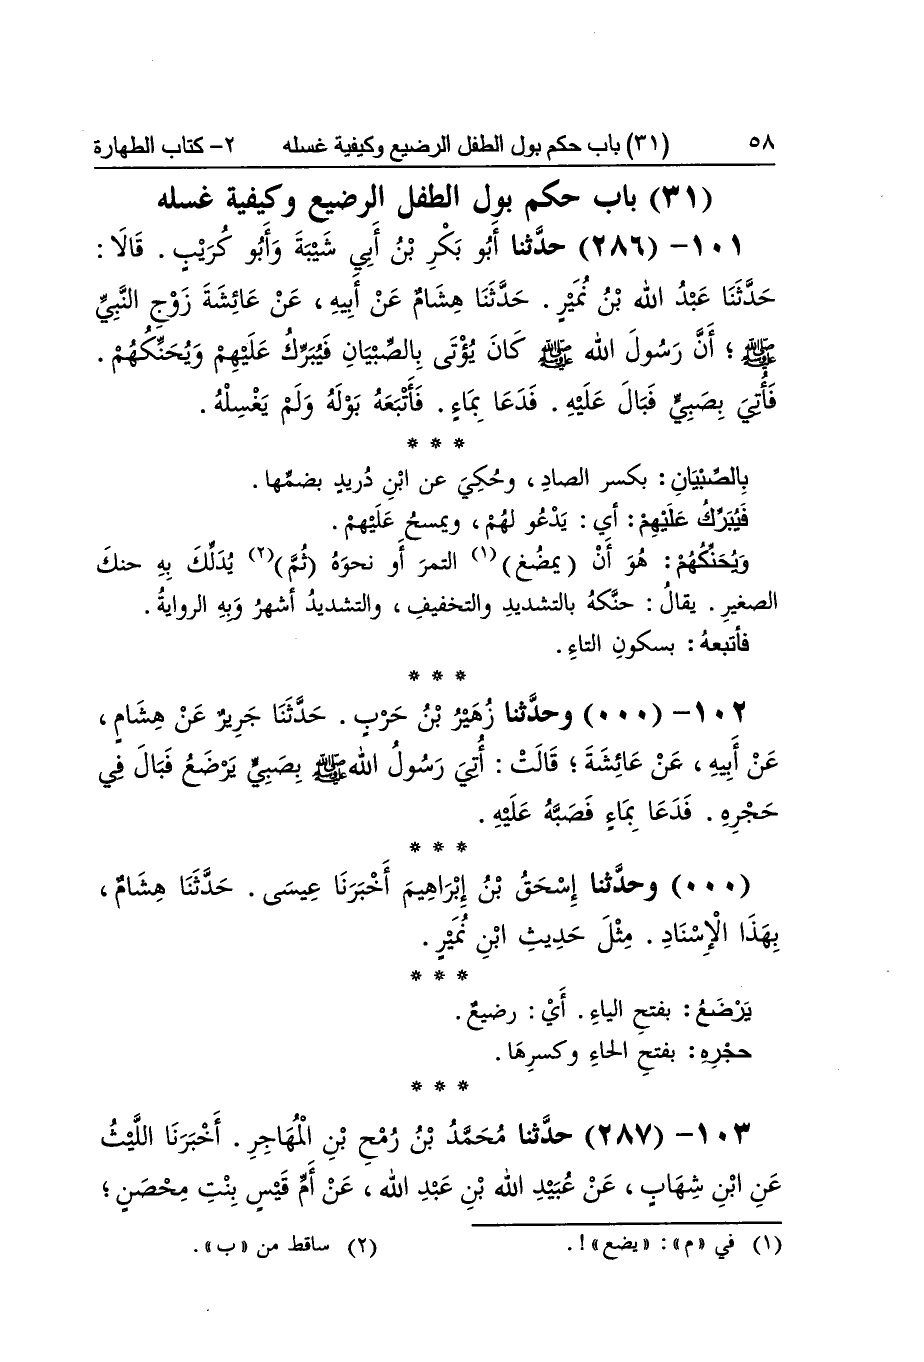 ٥٨ (٣١) باب حكم بول الطفل الرضيع وكيفية غسله ٢- كتاب الطهارة
(٣١) باب حكم بول الطفل الرضيع وكيفية غسله
١٠١- (٢٨٦) حدَّثنا أَبُو بَكْرِ بْنُ أَبِي شَيْبَةَ وَأَبُو كُرَيْبٍ . قَالَا :
حَدَّثَنَا عَبْدُ الله بْنُ نُمَيْرٍ . حَدَّثَنَا هِشَامٌ عَنْ أَبِيهِ ، عَنْ عَائِشَةَ زَوْجِ النَّبِيِّ
ﷺ ؛ أَنَّ رَسُولَ الله ﷺ كَانَ يُؤْتَى بِالصِّبْيَانِ فَيُبَرِّكُ عَلَيْهِمْ وَيُحَنِّكُهُمْ .
فَأُتِيَ بِصَبِيٍّ فَبَالَ عَلَيْهِ . فَدَعَا بِمَاءٍ . فَأَتْبَعَهُ بَوْلَهُ وَلَمْ يَغْسِلْهُ .
* * *
بِالصِّبْيَانِ : بكسر الصادِ ، وحُكِيَ عن ابْنِ دُريدٍ بضمِّها .
فَيُبَرِّكُ عَلَيْهِمْ : أي : يَدْعُو لهُمْ ، ويمسحُ عَلَيْهِمْ .
وَيُحَنِّكُهُمْ : هُوَ أَنْ (يمضُغ)(١) التمرَ أَو نحوَهُ (ثُمَّ)(٢) يُدَلِّكَ بِهِ حنكَ
الصغيرِ . يقالُ : حنَّكهُ بالتشديدِ والتخفيفِ ، والتشديدُ أشهرُ وَبِهِ الروايةُ .
فأتبعهُ : بسكونِ التاءِ .
* * *
١٠٢- (٠٠٠) وحدَّثنا زُهَيْرُ بْنُ حَرْبٍ . حَدَّثَنَا جَرِيرٌ عَنْ هِشَامٍ ،
عَنْ أَبِيهِ ، عَنْ عَائِشَةَ ؛ قَالَتْ : أُتِيَ رَسُولُ الله ﷺ بِصَبِيٍّ يَرْضَعُ فَبَالَ فِي
حَجْرِهِ . فَدَعَا بِمَاءٍ فَصَبَّهُ عَلَيْهِ .
* * *
(٠٠٠) وحدَّثنا إِسْحَقُ بْنُ إِبْرَاهِيمَ أَخْبَرَنَا عِيسَى . حَدَّثَنَا هِشَامٌ ،
بِهَذَا الْإِسْنَادِ . مِثْلَ حَدِيثِ ابْنِ نُمَيْرٍ .
* * *
يَرْضَعُ : بفتحِ الياءِ . أَيْ : رضيعٌ .
حجْرِهِ : بفتحِ الحاءِ وكسرِهَا .
* * *
١٠٣- (٢٨٧) حدَّثنا مُحَمَّدُ بْنُ رُمْحِ بْنِ الْمُهَاجِرِ . أَخْبَرَنَا اللَّيْثُ
عَنِ ابْنِ شِهَابٍ ، عَنْ عُبَيْدِ الله بْنِ عَبْدِ الله ، عَنْ أُمِّ قَيْسٍ بِنْتِ مِحْصَنٍ ؛
(١) في «م» : «يضع» ! . (٢) ساقط من «ب» .